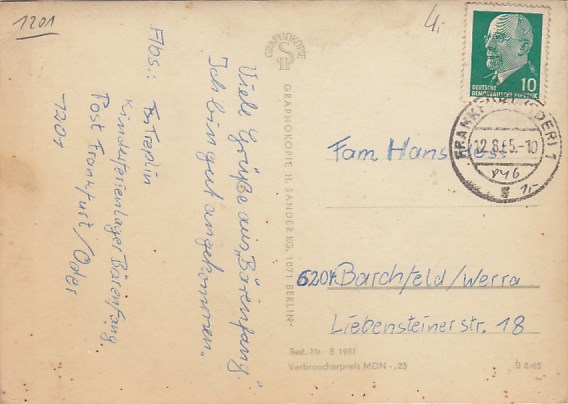 1201
4,-
Viele Grüße aus „Bärenfang"
Ich bin gut angekommen.
Abs.: Treplin
Kinderferienlager Bärenfang
Post Frankfurt/Oder
1201
GRAPHOKOPIE
GRAPHOKOPIE H. SANDER KG, 1071 BERLIN-
10
DEUTSCHE
DEMOKRATISCHE REPUBLIK
FRANKFURT (ODER) 1
12.8.65.-10
Fam Hans
6204 Barchfeld/Werra
Liebensteiner str. 18
Best.-Nr. B 1957
Verbraucherpreis MDN -,25